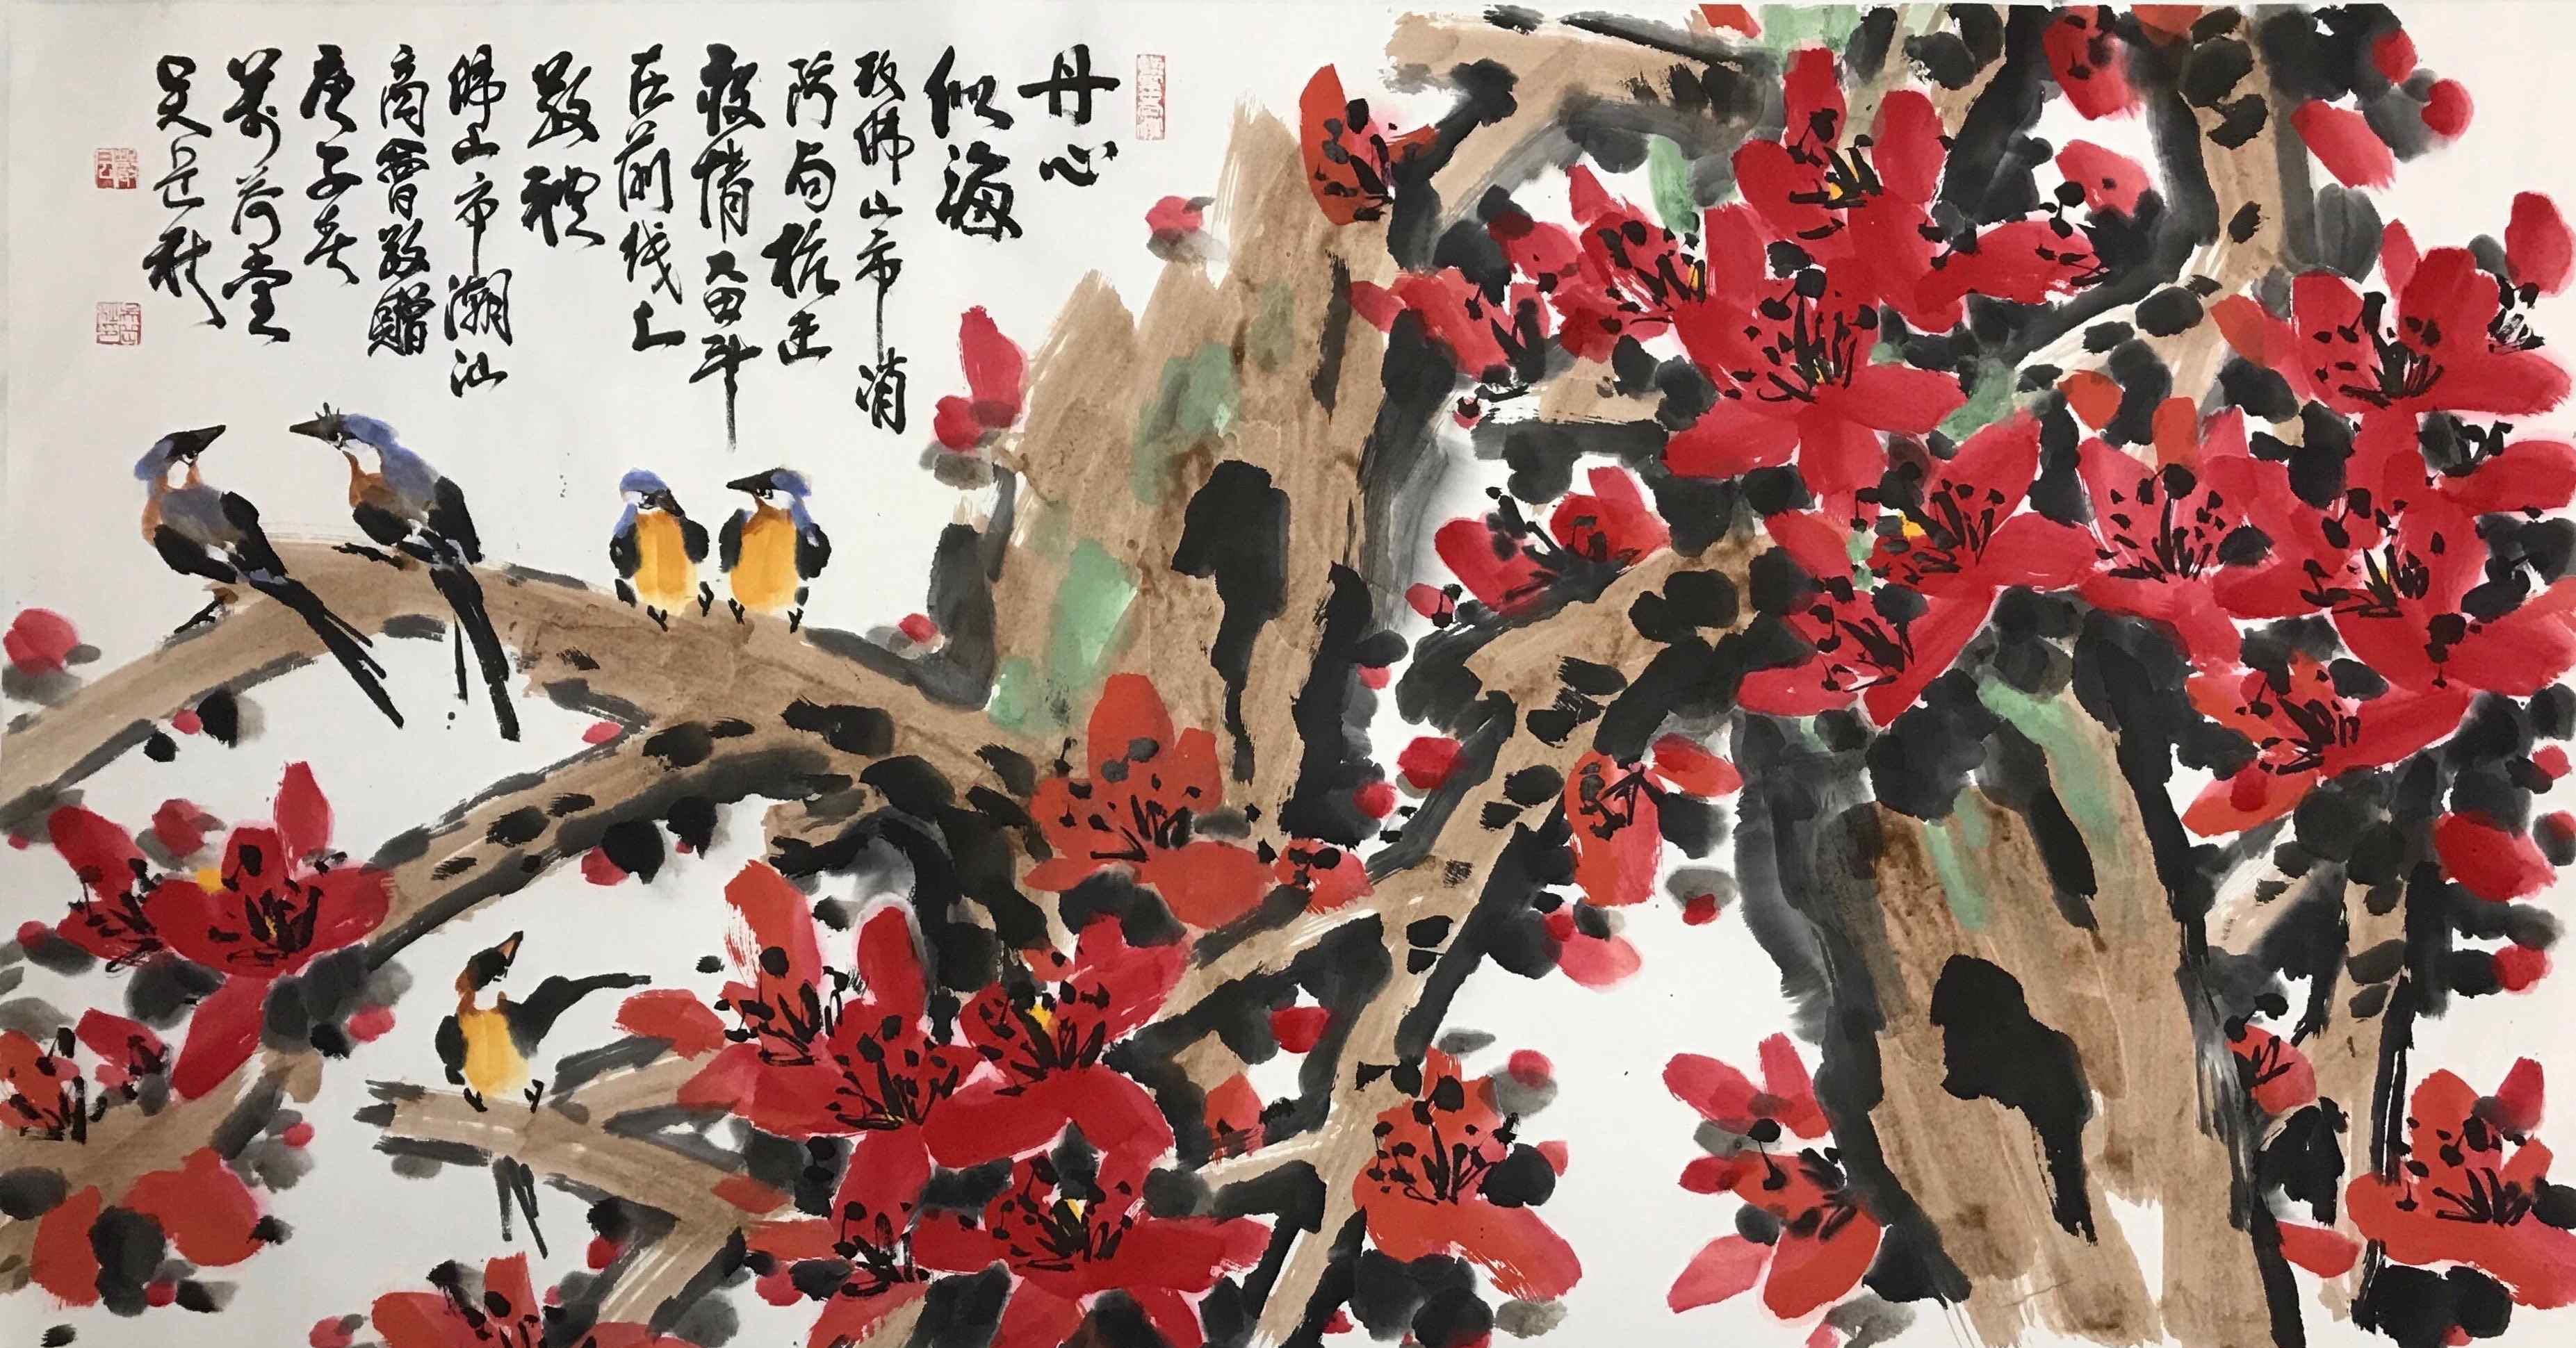 丹心
似海
致佛山市消
防局抗击
疫情奋斗
在前线上
敬禮
佛山市潮汕
商會敬贈
庚子春
萬荷堂
吴秋